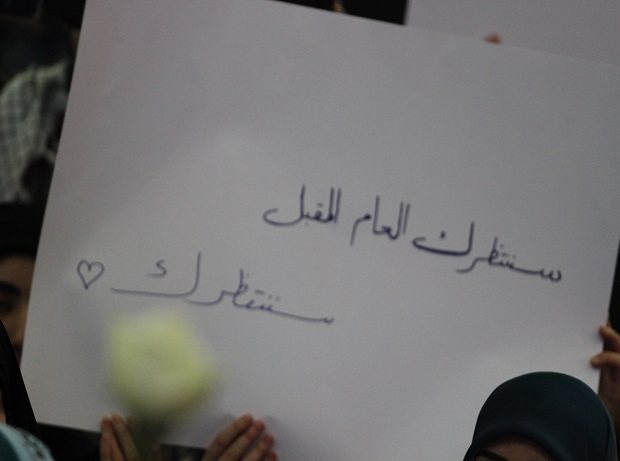 سننتظرك العام المقبل
سننتظرك ♡